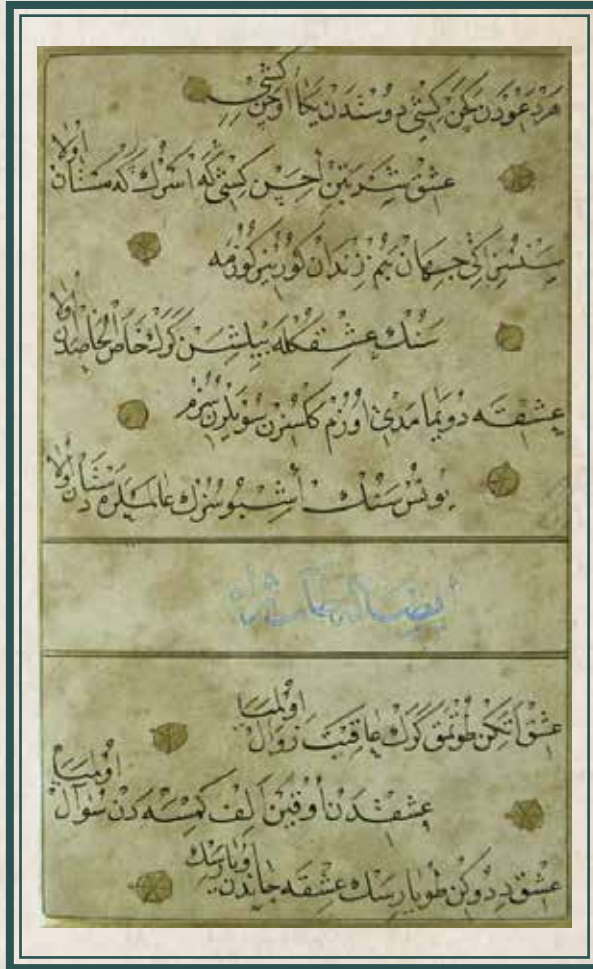 هر دعوذن كچن كشی دوستدن یكا اوچن كشی
عشق شربتن اچن كشی كه اسرك كه مستان اولا
سنسیزن اكی جهان بنم زندان كورینر كوزمه
سنك عشقكله بیلشن كرك خاص الخاصدن اولا
عشقه دویمامدی اوزم كلسزن سویلرن سوزم
یونس سنك اشبو سوزك عالملره دستان اولا
ایضا
عشق اتكن طوتمق كرك عاقبت زوال اولمیا
عشقدن اوقین الف كمسه دن سؤال اولمیا
عشق ددوكن طویارسك عشقه جاندن اویارسك